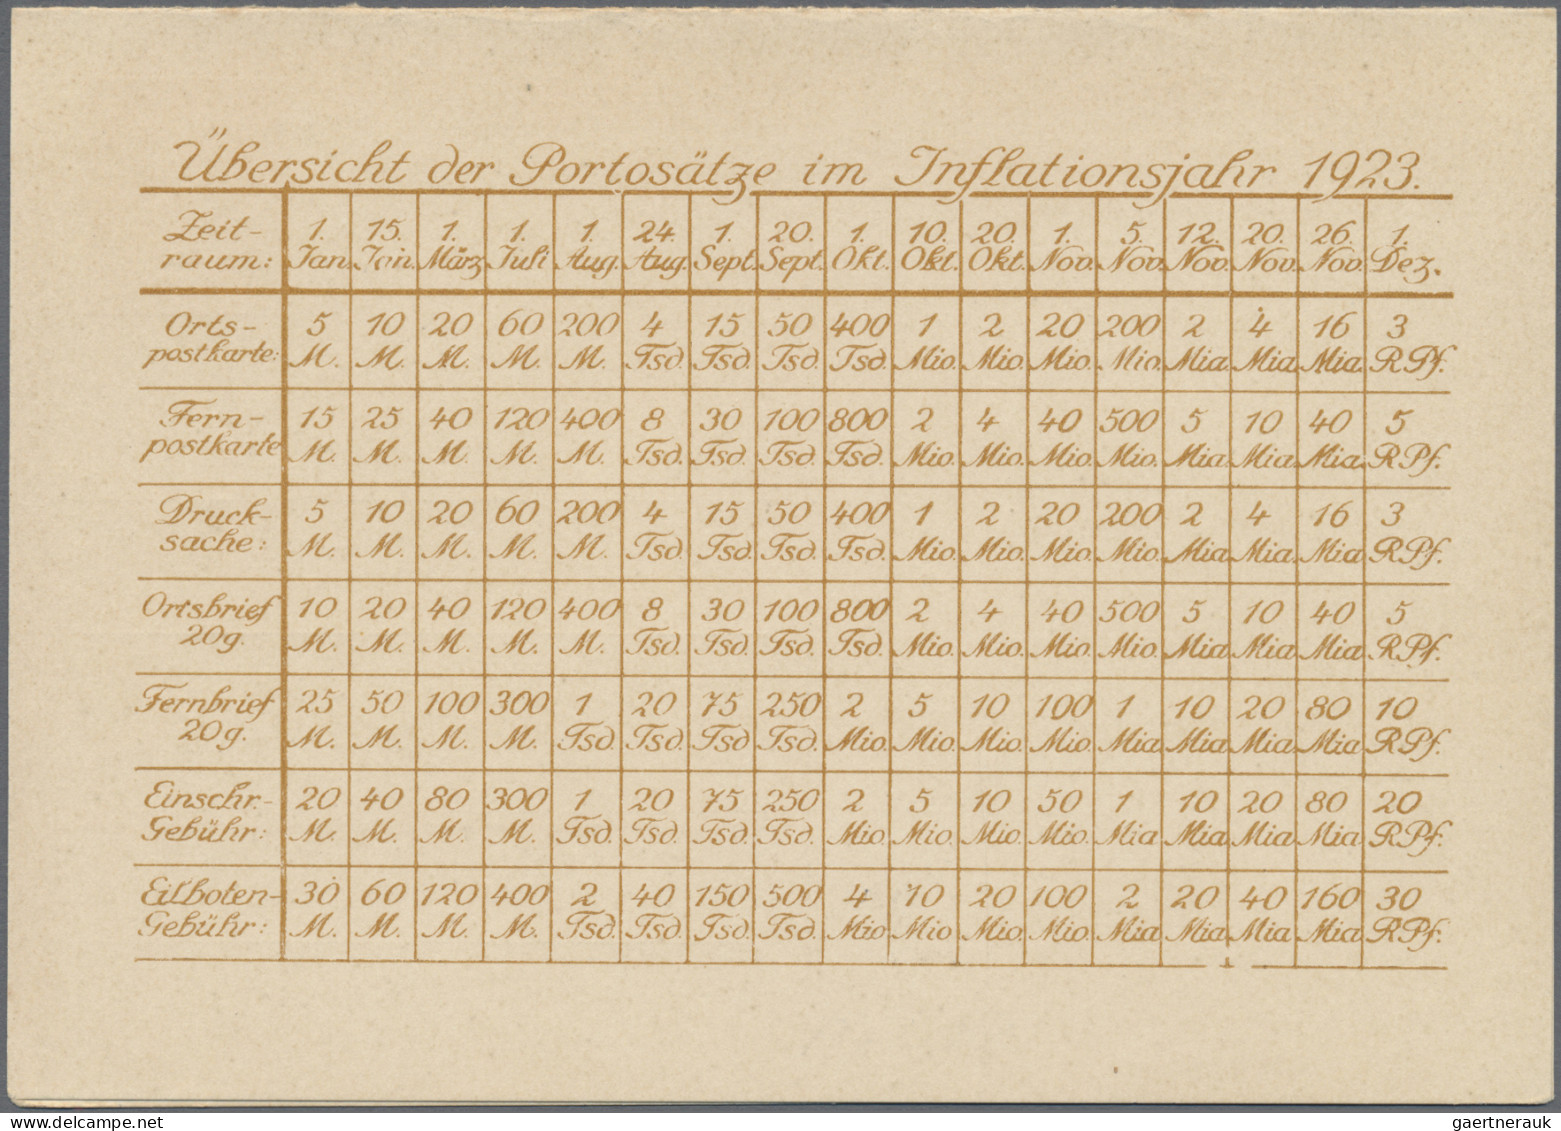 Übersicht der Portosätze im Inflationsjahr 1923.
Zeit- 1. 15. 1. 1. 1. 24. 1. 20. 1. 10. 20. 1. 5. 12. 20. 26. 1.
raum: Jan. Jan. März Juli Aug. Aug. Sept. Sept. Okt. Okt. Okt. Nov. Nov. Nov. Nov. Nov. Dez.
Orts- 5 10 20 60 200 4 15 50 400 1 2 20 200 2 4 16 3
postkarte: M. M. M. M. M. Tsd. Tsd. Tsd. Tsd. Mio. Mio. Mio. Mio. Mia. Mia. Mia. R.Pf.
Fern- 15 25 40 120 400 8 30 100 800 2 4 40 500 5 10 40 5
postkarte M. M. M. M. M. Tsd. Tsd. Tsd. Tsd. Mio. Mio. Mio. Mio. Mia. Mia. Mia. R.Pf.
Druck- 5 10 20 60 200 4 15 50 400 1 2 20 200 2 4 16 3
sache: M. M. M. M. M. Tsd. Tsd. Tsd. Tsd. Mio. Mio. Mio. Mio. Mia Mia. Mia R.Pf.
Ortsbrief 10 20 40 120 400 8 30 100 800 2 4 40 500 5 10 40 5
20g. M. M. M. M. M. Tsd. Tsd. Tsd. Tsd. Mio. Mio. Mio. Mio. Mia Mia Mia R.Pf.
Fernbrief 25 50 100 300 1 20 75 250 2 5 10 100 1 10 20 80 10
20g. M. M. M. M. Tsd. Tsd. Tsd. Tsd. Mio. Mio. Mio. Mio. Mia Mia Mia. Mia R.Pf.
Einschr.- 20 40 80 300 1 20 75 250 2 5 10 50 1 10 20 80 20
Gebühr: M. M. M. M. Tsd. Tsd. Tsd. Tsd. Mio. Mio. Mio. Mio. Mia Mia. Mia Mia R.Pf.
Eilboten- 30 60 120 400 2 40 150 500 4 10 20 100 2 20 40 160 30
Gebühr: M. M. M. M. Tsd. Tsd. Tsd. Tsd. Mio Mio Mio. Mio. Mia Mia Mia Mia R.Pf.
gaertnerauk